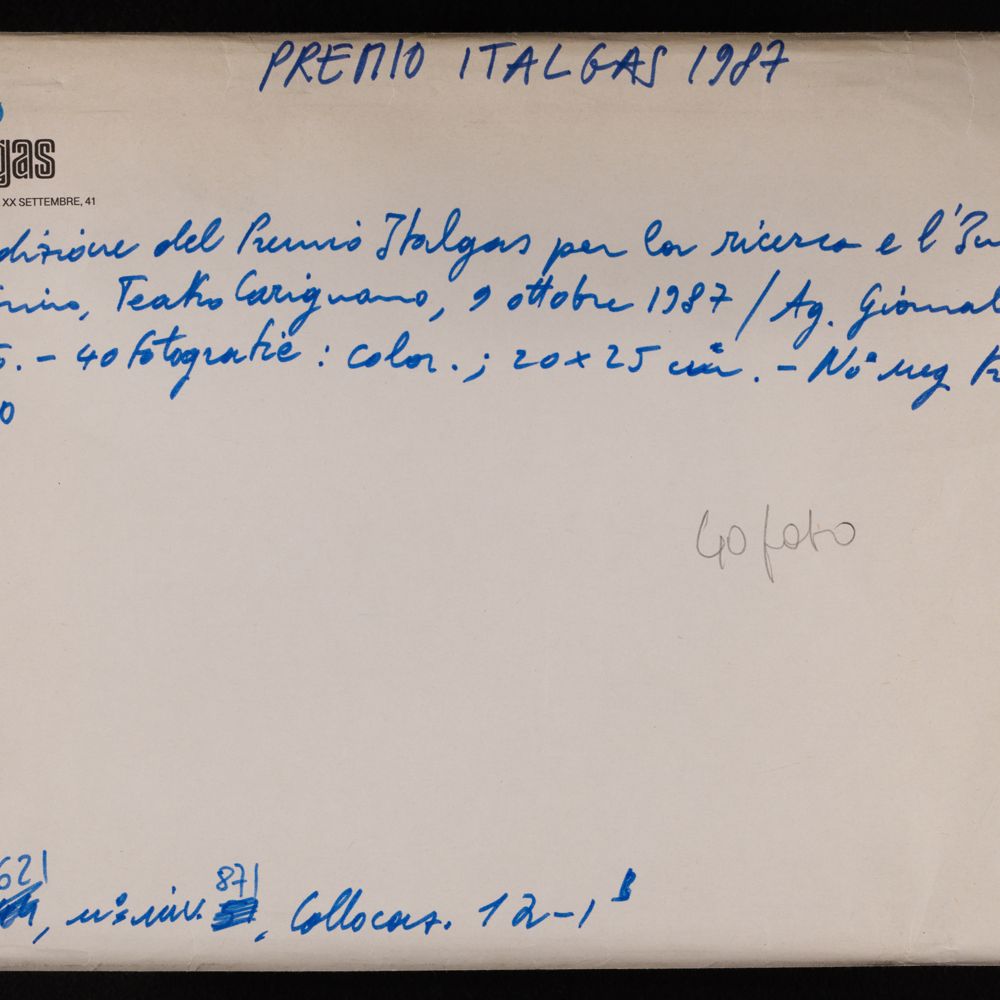 PREMIO ITALGAS 1987
gas
XX SETTEMBRE, 41
dizione del Premio Italgas per la ricerca e l'
Teatro Carignano, 9 ottobre 1987 / Ag. Giornal
. - 40 fotografie : color. ; 20 x 25 cm. - N° neg
0
40 foto
621 871
, n° inv. , Collocaz. 12-1 B